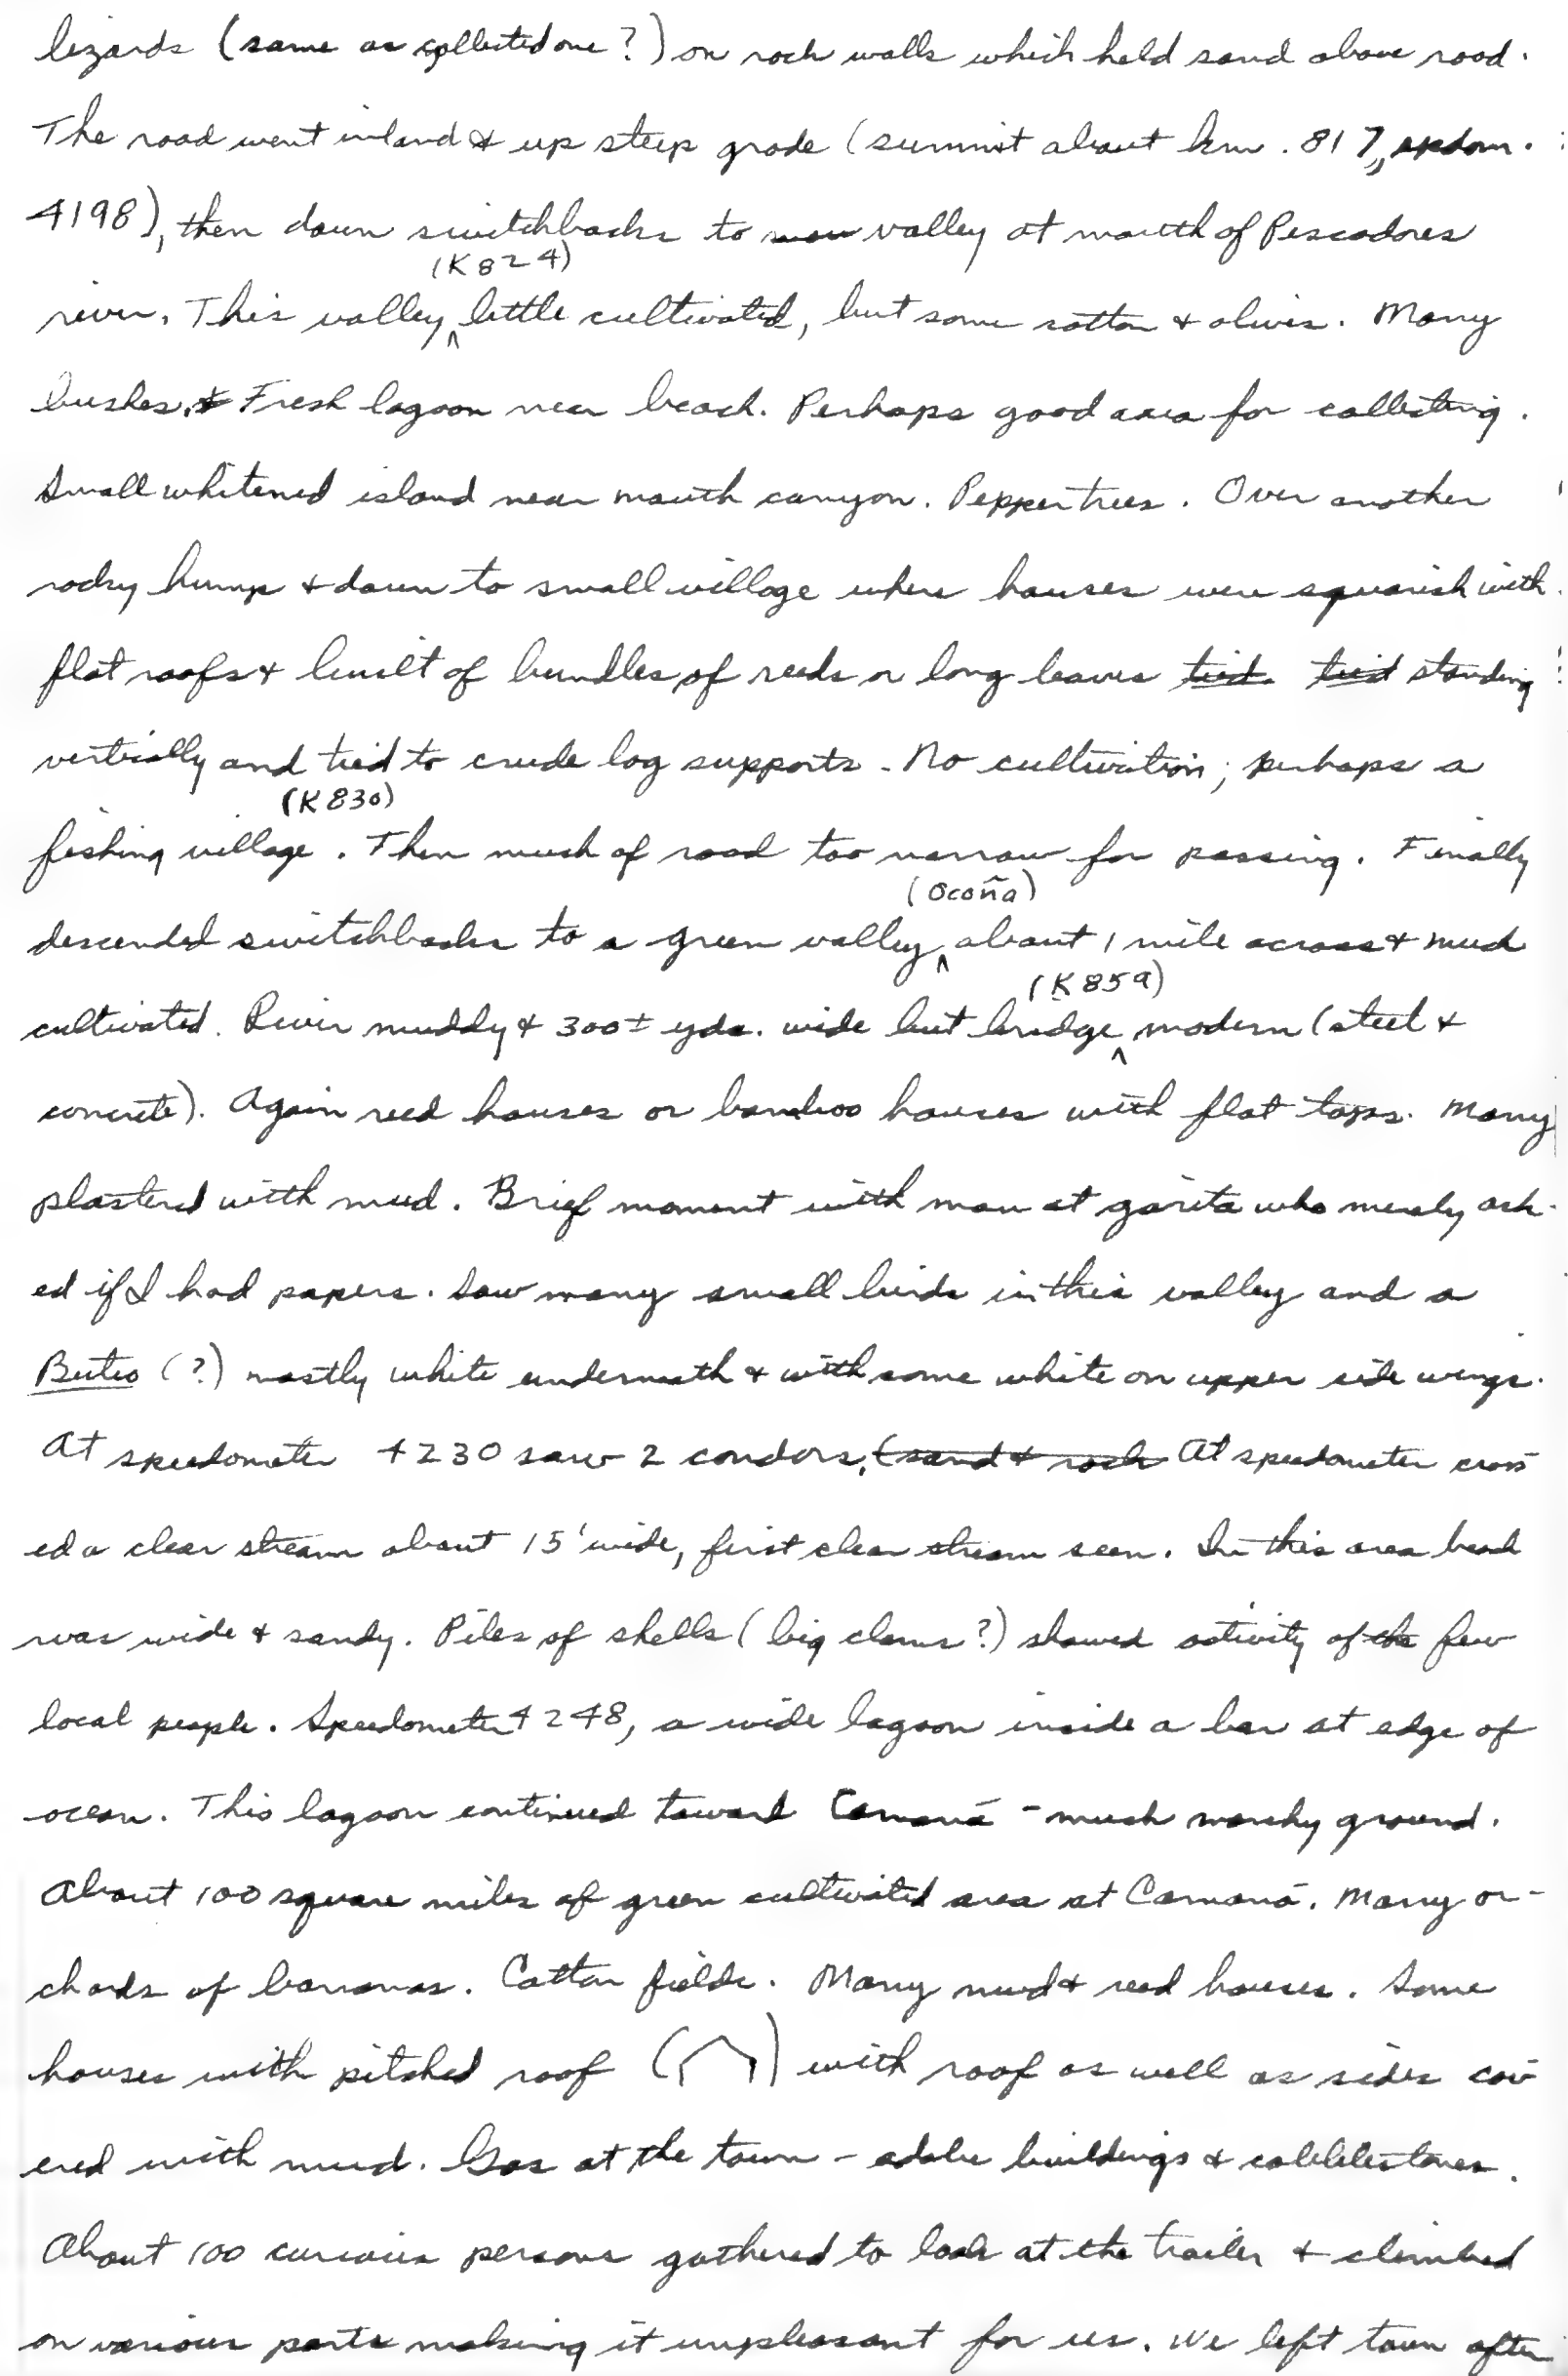 lizards (same as collected one?) on rock walls which held sand above road.
The road went inland & up steep grade (summit about km. 817, spdom.
4198), then down switchbacks to valley at mouth of Pescadores
(K824)
river. This valley little cultivated, but some cotton & olives. Many
bushes. Fresh lagoon near beach. Perhaps good area for collecting.
Small whitened island near mouth canyon. Pepper trees. Over another
rocky hump & down to small village where houses were squarish with
flat roofs & built of bundles of reeds or long leaves tied tied standing
vertically and tied to crude log supports. No cultivation; perhaps a
(K830)
fishing village. Then much of road too narrow for passing. Finally
(Ocoña)
descended switchbacks to a green valley about 1 mile across & much
(K859)
cultivated. River muddy & 300± yds. wide but bridge modern (steel &
concrete). Again reed houses or bamboo houses with flat tops. Many
plastered with mud. Brief moment with man at garita who merely ask-
ed if I had papers. Saw many small birds in this valley and a
Buteo (?) mostly white underneath & with some white on upper side wings.
At speedometer 4230 saw 2 condors. (sand & rock At speedometer cross-
ed a clear stream about 15' wide, first clear stream seen. In this area beach
was wide & sandy. Piles of shells (big clams?) showed activity of the few
local people. Speedometer 4248, a wide lagoon inside a bar at edge of
ocean. This lagoon continued toward Camaná - much marshy ground.
About 100 square miles of green cultivated area at Camaná. Many or-
chards of bananas. Cotton fields. Many mud & reed houses. Some
houses with pitched roof ( ) with roof as well as sides cov-
ered with mud. Gas at the town - adobe buildings & cobblestones.
About 100 curious persons gathered to look at the trailer & climbed
on various parts making it unpleasant for us. We left town after